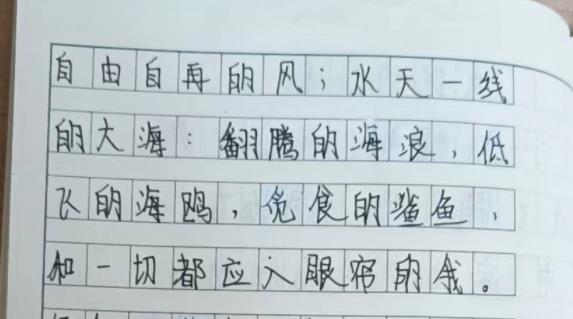 自由自再的风；水天一线
的大海：翻腾的海浪，低
飞的海鸥，觅食的鲨鱼，
和一切都应入眼帘的我。